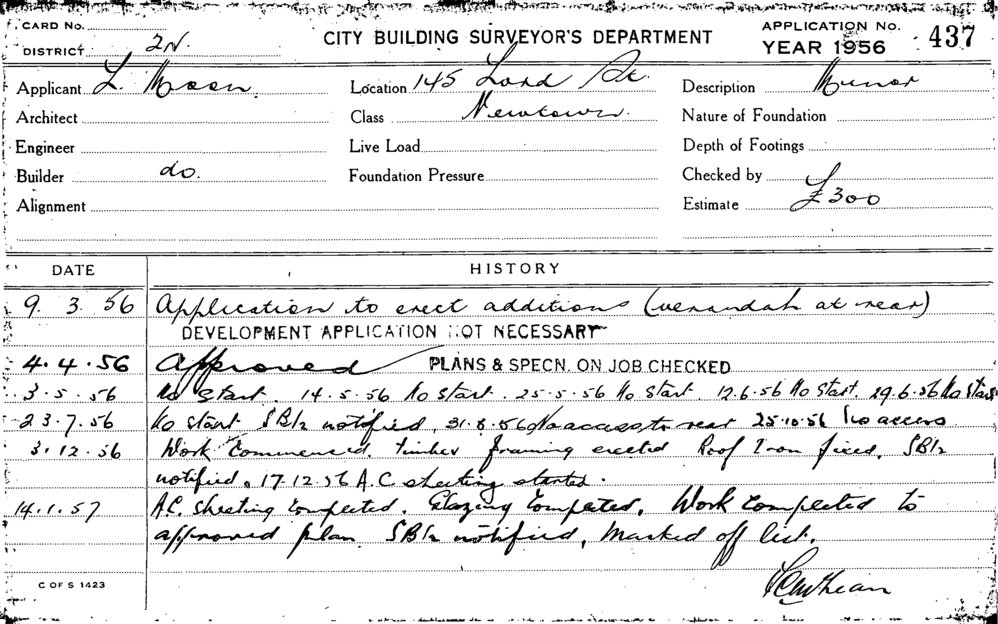 CARD No.
DISTRICT 2N.
CITY BUILDING SURVEYOR'S DEPARTMENT
APPLICATION No.
YEAR 1956 437
Applicant L. Moon. Location 145 Lord St. Description Minor
Architect Class Newtown. Nature of Foundation
Engineer Live Load Depth of Footings
Builder do. Foundation Pressure Checked by
Alignment Estimate £300
DATE HISTORY
9. 3. 56 Application to erect additions (verandah at rear)
DEVELOPMENT APPLICATION NOT NECESSARY
4.4.56 Approved PLANS & SPECN. ON JOB CHECKED
3.5.56 No Start. 14.5.56 No Start. 25.5.56 No Start. 12.6.56 No Start. 29.6.56 No Start
23.7.56 No start notified. 31.8.56 No access to rear 25.10.56 No access
3.12.56 Work Commenced. Timber framing erected Roof Iron fixed.
notified. 17.12.56 A.C sheeting started.
14.1.57 A.C. Sheeting Completed. Glazing Completed. Work completed to
approved plan. notified, Marked off list.
C OF S 1423